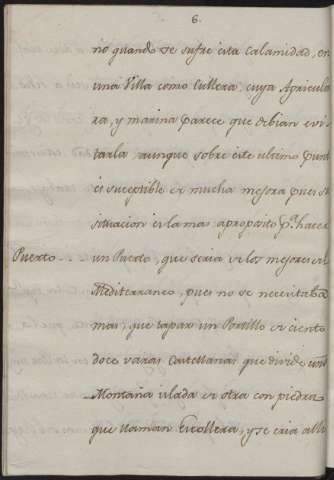 6.
no quando se sufre esta calamidad, en
una Villa como Cullera, cuya Agricultu
ra, y marina parece que debian evi
tarla aunque sobre este ultimo punto
es suceptible de mucha mejora pues su
situacion es la mas aproposito p.ª hacer
Puerto.. un Puerto, que seria de los mejores del
Mediterraneo, pues no se necesitaba
mas, que tapar un Portillo de ciento
doce varas Castellanas que divide una
Montaña islada de otra con piedra
que llaman Escollera, y se caia alli